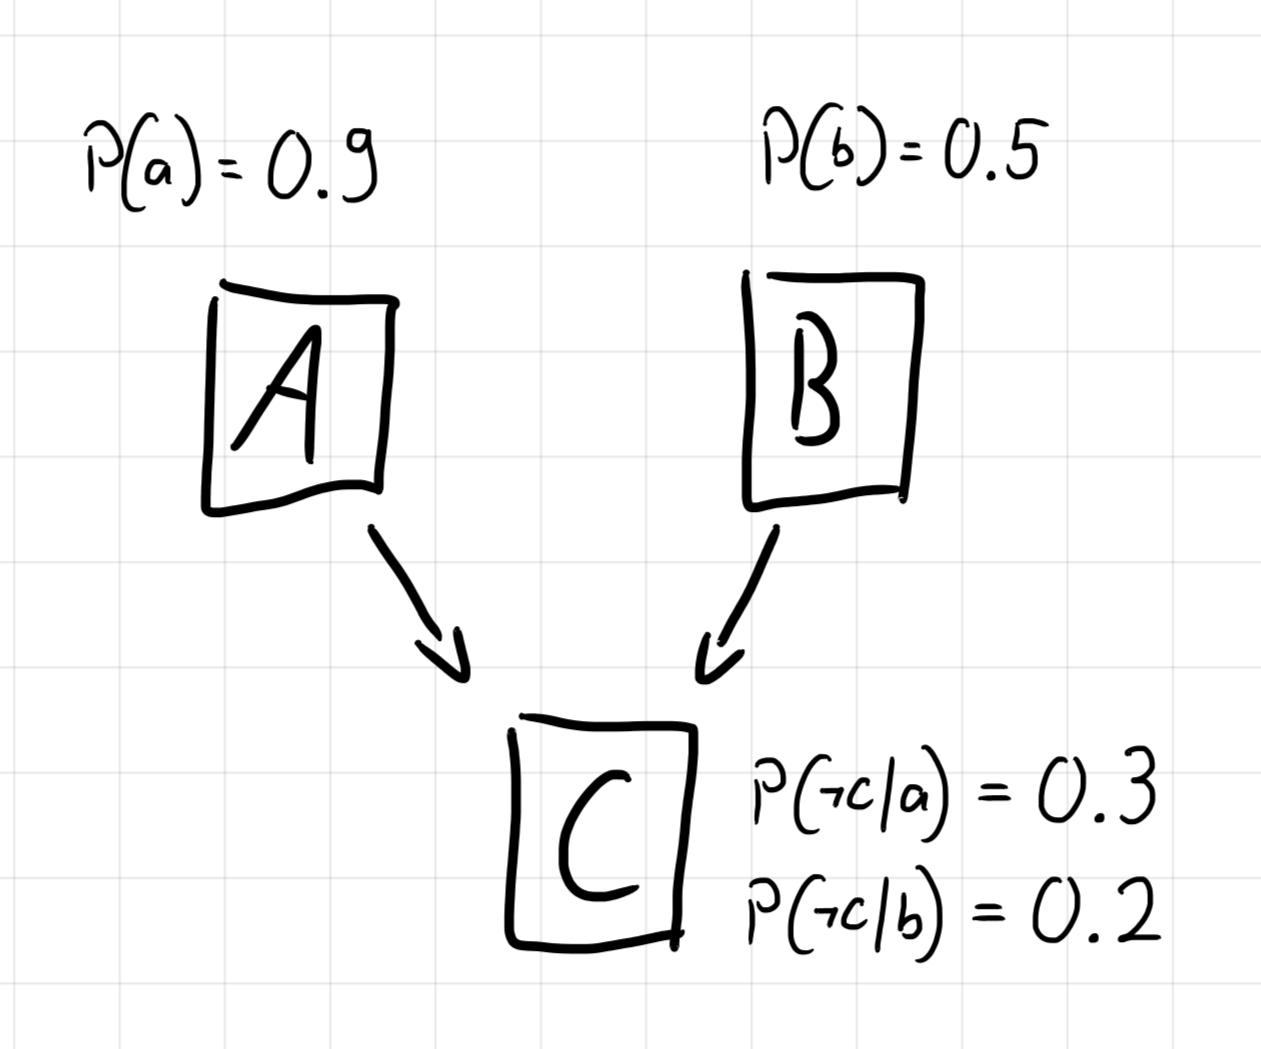 P(a) = 0.9
P(b) = 0.5
A
B
C
P(¬c|a) = 0.3
P(¬c|b) = 0.2